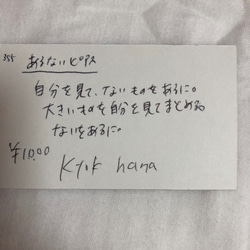 355 あるないピアス
自分を見て、ないものをあるに。
大きいものを自分を見てまとめる
ないをあるに。
¥10.00
Kyok hana